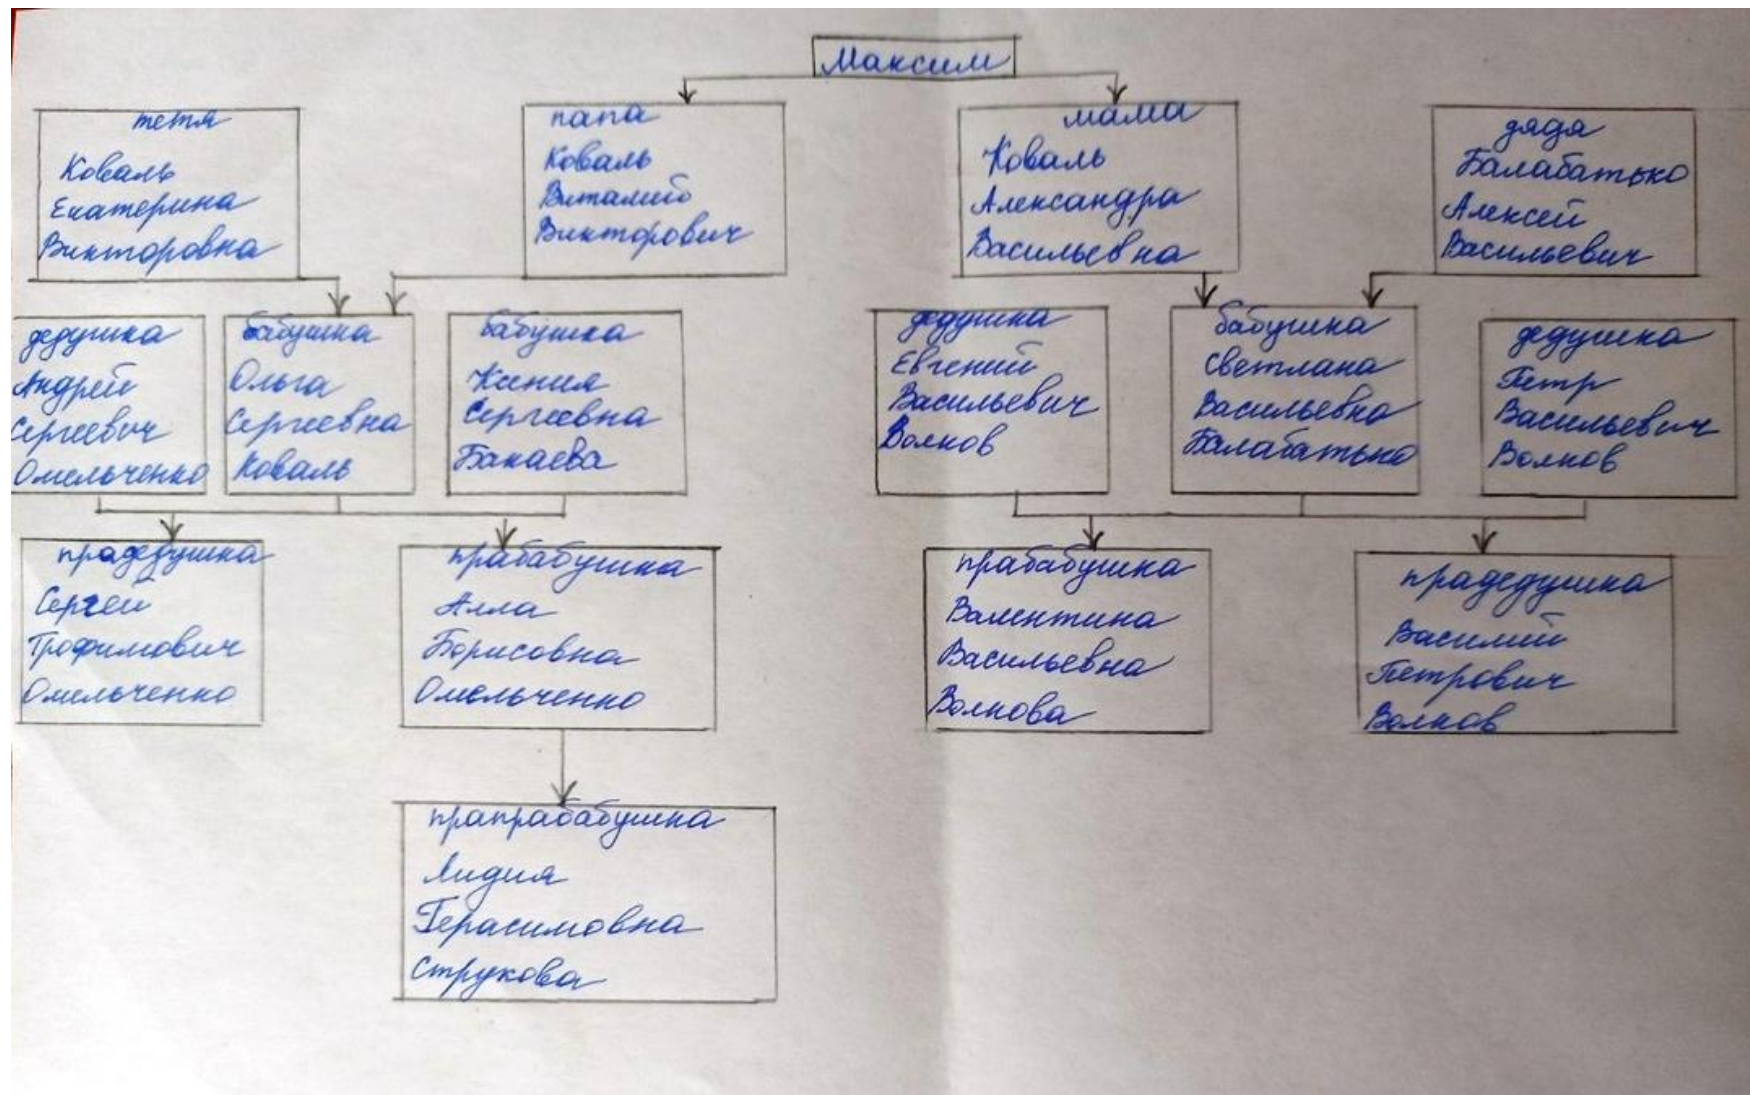 Максим
тетя
Коваль
Екатерина
Викторовна
папа
Коваль
Виталий
Викторович
мама
Коваль
Александра
Васильевна
дядя
Балабатько
Алексей
Васильевич
дедушка
Андрей
Сергеевич
Омельченко
бабушка
Ольга
Сергеевна
Коваль
бабушка
Ксения
Сергеевна
Бакаева
дедушка
Евгений
Васильевич
Волков
бабушка
Светлана
Васильевна
Балабатько
дедушка
Петр
Васильевич
Волков
прадедушка
Сергей
Трофимович
Омельченко
прабабушка
Алла
Борисовна
Омельченко
прабабушка
Валентина
Васильевна
Волкова
прадедушка
Василий
Петрович
Волков
прапрабабушка
Лидия
Герасимовна
Струкова